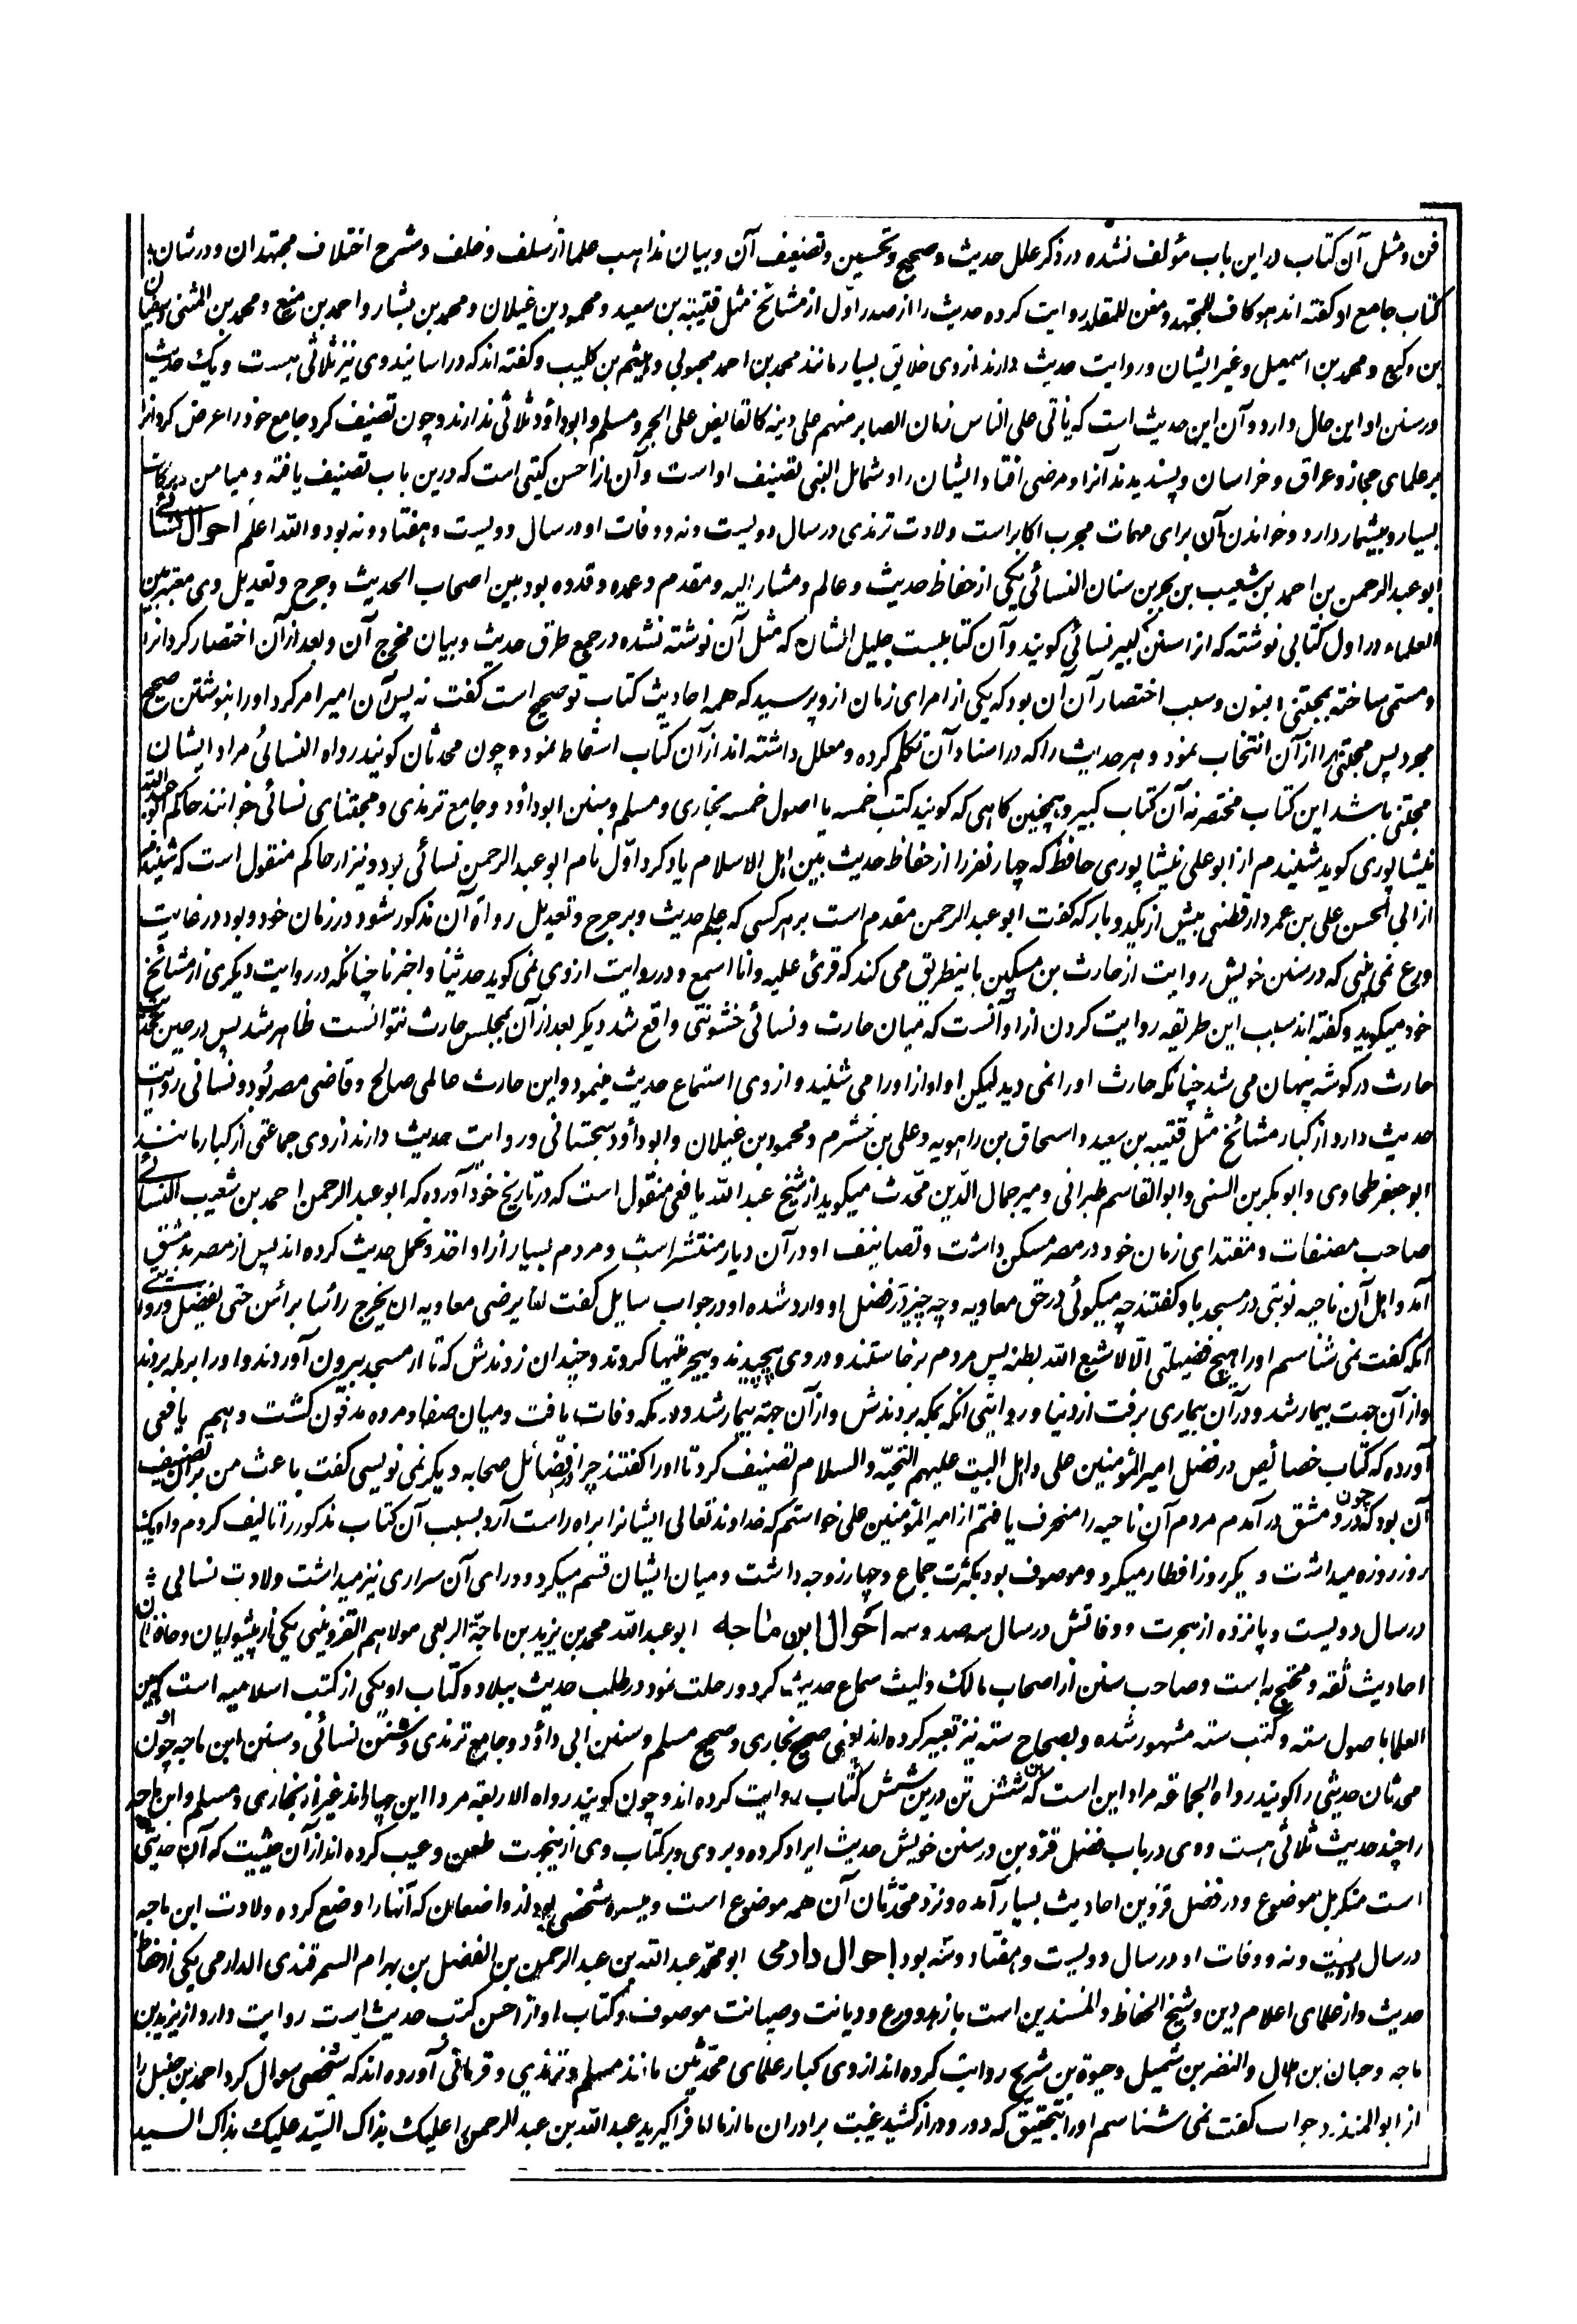 فن و مثل آن کتاب در این باب مؤلف نشده در ذکر علل حدیث و صحیح و تحسین و تضعیف آن و بیان مذاهب علما از سلف و خلف و شرح اختلاف مجتهدان و در شان
کتاب جامع او گفته اند هو کاف للمجتهد و مغن للمقلد روایت کرده حدیث را از صدر اول از مشائخ مثل قتیبة بن سعید و محمود بن غیلان و محمد بن بشار و احمد بن منیع و محمد بن المثنی و سفیان
بن وکیع و محمد بن اسمعیل و غیر ایشان و روایت حدیث دارند از وی خلایق بسیار مانند محمد بن احمد محبوبی و هیثم بن کلیب و گفته اند که در اسانید وی نیز ثلاثی هست و یک حدیث
در سنن او این حال دارد و آن این حدیث است که یأتی علی الناس زمان الصابر منهم علی دینه کالقابض علی الجمر و مسلم و ابو داؤد ثلاثی ندارند و چون تصنیف کرد جامع خود را عرض کرد آنرا
بر علمای حجاز و عراق و خراسان و پسندیدند آنرا و مرضی افتاد ایشان را و شمائل النبی تصنیف او است و آن از احسن کتبی است که درین باب تصنیف یافته و میامن و برکات
بسیار و بیشمار دارد و خواندن آن برای مهمات مجرب اکابر است ولادت ترمذی در سال دویست و نه و وفات او در سال دویست و هفتاد و نه بود و الله اعلم احوال نسائی
ابو عبد الرحمن بن احمد بن شعیب بن بحر بن سنان النسائی یکی از حفاظ حدیث و عالم و مشار الیه و مقدم و عمده و قدوه بود بین اصحاب الحدیث و جرح و تعدیل وی معتبر بین
العلماء در اول کتابی نوشته که از سنن کبیر نسائی گویند و آن کتابیست جلیل الشان که مثل آن نوشته نشده در جمع طرق حدیث و بیان مخرج آن و بعد از آن اختصار کرد آنرا
و مسمی ساخته بمجتنی بنون و سبب اختصار آن آن بود که یکی از امرای زمان از و پرسید که همه احادیث کتاب تو صحیح است گفت نه پس آن امیر امر کرد او را بنوشتن صحیح
مجرد پس مجتنی را از آن انتخاب نمود و هر حدیث را که در اسناد آن تکلم کرده و معلل داشته اند از آن کتاب اسقاط نمود و چون محدثان گویند رواه النسائی مراد ایشان
مجتنی باشد این کتاب مختصر نه آن کتاب کبیر و همچنین گاهی که گویند کتب خمسه یا اصول خمسه بخاری و مسلم و سنن ابو داؤد و جامع ترمذی و مجتنای نسائی خوانند حاکم ابو عبد الله
نیشاپوری گوید شنیدم از ابو علی نیشاپوری حافظ که چهار نفر را از حفاظ حدیث بین اهل الاسلام یاد کرد اول نام ابو عبد الرحمن نسائی بود و نیز از حاکم منقول است که شنیدم
از ابی الحسن علی بن عمر دارقطنی بیش از یک و بار که گفت ابو عبد الرحمن مقدم است بر هر کسی که بعلم حدیث و بر جرح و تعدیل رواة آن مذکور شود در زمان خود و بود در غایت
ورع نمی بینی که در سنن خویش روایت از حارث بن مسکین باینطریق می کند که قرئ علیه و انا اسمع و در روایت از وی نمی گوید حدثنا و اخبرنا چنانکه در روایت دیگری از مشائخ
خود میگوید و گفته اند سبب این طریقه روایت کردن از او آنست که میان حارث و نسائی خشونتی واقع شد دیگر بعد از آن بمجلس حارث نتوانست ظاهر شد پس در حین تحدیث
حارث در گوشه پنهان می شد چنانکه حارث او را نمی دید لیکن او آواز او را می شنید و از وی استماع حدیث مینمود و این حارث عالمی صالح و قاضی مصر بود و نسائی روایت
حدیث دارد از کبار مشائخ مثل قتیبه بن سعید و اسحاق بن راهویه و علی بن خشرم و محمود بن غیلان و ابو داؤد سجستانی و روایت حدیث دارند از وی جماعتی از کبار مانند
ابو جعفر طحاوی و ابو بکر بن السنی و ابو القاسم طبرانی و میر جمال الدین محدث میگوید از شیخ عبد الله یافعی منقول است که در تاریخ خود آورده که ابو عبد الرحمن احمد بن شعیب النسائی
صاحب مصنفات و مقتدای زمان خود در مصر مسکن داشت و تصانیف او در آن دیار منتشر است و مردم بسیار از او اخذ و تحمل حدیث کرده اند پس از مصر بدمشق
آمد و اهل آن ناحیه نوبتی در مسجد باو گفتند چه میگوئی در حق معاویه و چه چیز در فضل او وارد شده او در جواب سایل گفت اما یرضی معاویه ان یخرج رأسا برأس حتی یفضل و روایتی
آنکه گفت نمی شناسم او را هیچ فضیلتی الا لا اشبع الله بطنه پس مردم برخاستند و در وی پیچیدند و بیحرمتیها کردند و چندان زدندش که تا از مسجد بیرون آوردند و او را برمله بردند
و از آن جهت بیمار شد و در آن بیماری برفت از دنیا و روایتی آنکه بمکه بردندش و از آن جهة بیمار شد و در مکه وفات یافت و میان صفا و مروه مدفون گشت و هم یافعی
آورده که کتاب خصائص در فضل امیر المؤمنین علی و اهل البیت علیهم التحیة و السلام تصنیف کرد تا او را گفتند چرا در فضائل صحابه دیگر نمی نویسی گفت باعث من بر این تصنیف
آن بود که چون در دمشق در آمدم مردم آن ناحیه را منحرف یافتم از امیر المؤمنین علی خواستم که خداوند تعالی ایشانرا براه راست آرد بسبب آن کتاب مذکور را تالیف کردم و او یک
روز روزه میداشت و یکروز افطار میکرد و موصوف بود بکثرت جماع و چهار زوجه داشت و میان ایشان قسم میکرد و ورای آن سراری نیز میداشت ولادت نسائی
در سال دویست و پانزده از هجرت و وفاتش در سال سه صد و سه احوال ابن ماجه ابو عبد الله محمد بن یزید بن ماجة الربعی مولاهم القزوینی یکی از پیشوایان و حافظان
احادیث ثقه و محتج به است و صاحب سنن از اصحاب مالک و لیث سماع حدیث کرد و رحلت نمود در طلب حدیث ببلاد و کتاب او یکی از کتب اسلامیه است که بین
العلما باصول سته و کتب سته مشهور شده و بصحاح سته نیز تعبیر کرده اند یعنی صحیح بخاری و صحیح مسلم و سنن ابی داؤد و جامع ترمذی و سنن نسائی و سنن ابن ماجه و چون
محدثان حدیثی را گویند رواه الجماعة مراد این است که این شش تن درین شش کتاب روایت کرده اند و چون گویند رواه الاربعة مراد این چهار اند غیر از بخاری و مسلم و ابن ماجه
را چند حدیث ثلاثی هست و وی در باب فضل قزوین در سنن خویش حدیث ایراد کرده و بر وی و بر کتاب وی ازینجهت طعن و عیب کرده اند از آن حیثیت که آن حدیثی
است منکر بل موضوع و در فضل قزوین احادیث بسیار آمده و نزد محدثان آن همه موضوع است و میسره شخصی بود از واضعان که آنها را وضع کرده ولادت ابن ماجه
در سال دویست و نه و وفات او در سال دویست و هفتاد و سه بود احوال دارمی ابو محمد عبد الله بن عبد الرحمن بن الفضل بن بهرام السمرقندی الدارمی یکی از حفاظ
حدیث و از علمای اعلام دین و شیخ الحفاظ و المسندین است بازهد و ورع و دیانت و صیانت موصوف و کتاب او از احسن کتب حدیث است روایت دارد از یزید بن
ماجه و حبان بن هلال و النضر بن شمیل و حیوة بن شریح روایت کرده اند از وی کبار علمای محدثین مانند مسلم و ترمذی و آورده اند که شخصی سوال کرد احمد بن حنبل را
از ابو المنذر جواب گفت نمی شناسم او را بتحقیق که دور و دراز کشید غیبت برادران ما از ما اما فراگیرید عبد الله بن عبد الرحمن را علیک بذاک السید علیک بذاک السید